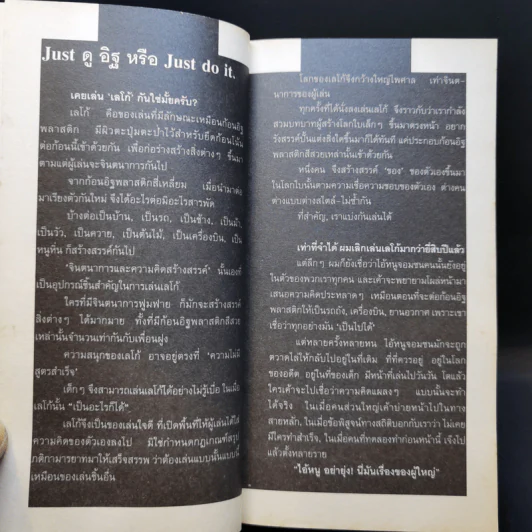 Just ดู อิฐ หรือ Just do it.
เคยเล่น 'เลโก้' กันใช่มั้ยครับ?
เลโก้ คือของเล่นที่มีลักษณะเหมือนก้อนอิฐ
พลาสติก มีผิวตะปุ่มตะป่ำไว้สำหรับยึดก้อนโน้น
ต่อก้อนนี้เข้าด้วยกัน เพื่อก่อร่างสร้างสิ่งต่างๆ ขึ้นมา
ตามแต่ผู้เล่นจะจินตนาการกันไป
จากก้อนอิฐพลาสติกสี่เหลี่ยม เมื่อนำมาต่อ
มาเรียงตัวกันใหม่ จึงได้อะไรต่อมิอะไรสารพัด
บ้างต่อเป็นบ้าน, เป็นรถ, เป็นช้าง, เป็นม้า,
เป็นวัว, เป็นควาย, เป็นต้นไม้, เป็นเครื่องบิน, เป็น
หุ่นหีน ก็สร้างสรรค์กันไป
'จินตนาการและความคิดสร้างสรรค์' นั้นเองที่
เป็นอุปกรณ์ชิ้นสำคัญในการเล่นเลโก้
ใครที่มีจินตนาการพุ่มฟาย ก็มักจะสร้างสรรค์
สิ่งต่างๆ ได้มากมาย ทั้งที่มีก้อนอิฐพลาสติกสีสวย
เหล่านั้นจำนวนเท่ากันกับเพื่อนฝูง
ความสนุกของเลโก้ อาจอยู่ตรงที่ 'ความไม่มี
สูตรสำเร็จ'
เด็กๆ จึงสามารถเล่นเลโก้ได้อย่างไม่รู้เบื่อ ในเมื่อ
เลโก้นั้น "เป็นอะไรก็ได้"
เลโก้จึงเป็นของเล่นใจดี ที่เปิดพื้นที่ให้ผู้เล่นได้ใส่
ความคิดของตัวเองลงไป มิใช่กำหนดกฎเกณฑ์สรุป
กติกามารยาทมาให้เสร็จสรรพ ว่าต้องเล่นแบบนั้นแบบนี้
เหมือนของเล่นชิ้นอื่น
โลกของเลโก้จึงกว้างใหญ่ไพศาล เท่าจินต-
นาการของผู้เล่น
ทุกครั้งที่ได้นั่งลงเล่นเลโก้ จึงราวกับว่าเรากำลัง
สวมบทบาทผู้สร้างโลกใบเล็กๆ ขึ้นมาตรงหน้า อยาก
รังสรรค์ปั้นแต่งสิ่งใดขึ้นมาก็ได้ทันที แค่ประกอบก้อนอิฐ
พลาสติกสีสวยเหล่านั้นเข้าด้วยกัน
หนึ่งคน จึงสร้างสรรค์ 'ของ' ของตัวเองขึ้นมา
ในโลกใบนั้นตามความเชื่อความชอบของตัวเอง ต่างคน
ต่างแบบต่างสไตล์-ไม่ซ้ำกัน
ที่สำคัญ, เราแบ่งกันเล่นได้
เท่าที่จำได้ ผมเลิกเล่นเลโก้มากว่ายี่สิบปีแล้ว
แต่ลึกๆ ผมก็ยังเชื่อว่าไอ้หนูจอมซนคนนั้นยังอยู่
ในตัวของพวกเราทุกคน และเค้าจะพยายามโผล่หน้ามา
เสนอความคิดประหลาดๆ เหมือนตอนที่จะต่อก้อนอิฐ
พลาสติกให้เป็นรถถัง, เครื่องบิน, ยานอวกาศ เพราะเขา
เชื่อว่าทุกอย่างมัน 'เป็นไปได้'
แต่หลายครั้งหลายหน ไอ้หนูจอมซนมักจะถูก
ตวาดไล่ให้กลับไปอยู่ในที่เดิม ที่ที่ควรอยู่ อยู่ในโลก
ของอดีต อยู่ในที่ของเด็ก มีหน้าที่เล่นไปวันวัน โตแล้ว
ใครเค้าจะไปเชื่อว่าความคิดแผลงๆ แบบนั้นจะทำ
ได้จริง ในเมื่อคนส่วนใหญ่เค้าบ่ายหน้าไปในทาง
สายหลัก, ในเมื่อข้อพิสูจน์ทางสถิติบอกกับเราว่า ไม่เคย
มีใครทำสำเร็จ, ในเมื่อคนที่ทดลองทำก่อนหน้านี้ เจ๊งไป
แล้วตั้งหลายราย
"ไอ้หนู อย่ายุ่ง! นี่มันเรื่องของผู้ใหญ่"